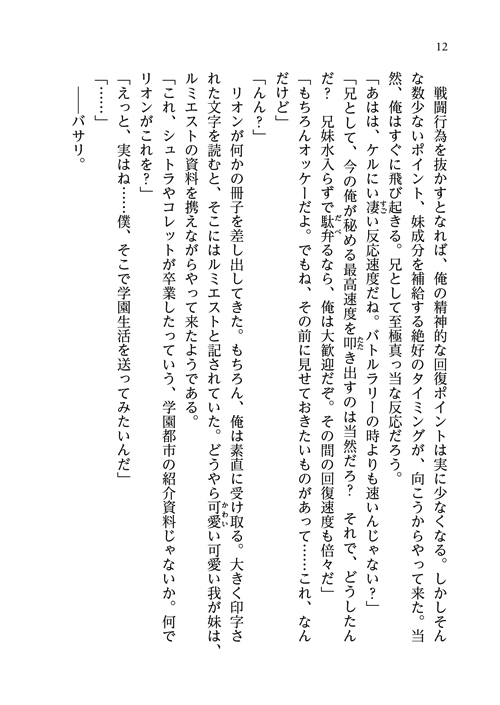 12
戦闘行為を抜かすとなれば、俺の精神的な回復ポイントは実に少なくなる。しかしそん
な数少ないポイント、妹成分を補給する絶好のタイミングが、向こうからやって来た。当
然、俺はすぐに飛び起きる。兄として至極真っ当な反応だろう。
「あはは、ケルにい凄い反応速度だね。バトルラリーの時よりも速いんじゃない？」
「兄として、今の俺が秘める最高速度を叩き出すのは当然だろ？　それで、どうしたん
だ？　兄妹水入らずで駄弁るなら、俺は大歓迎だぞ。その間の回復速度も倍々だ」
「もちろんオッケーだよ。でもね、その前に見せておきたいものがあって……これ、なん
だけど」
「んん？」
リオンが何かの冊子を差し出してきた。もちろん、俺は素直に受け取る。大きく印字さ
れた文字を読むと、そこにはルミエストと記されていた。どうやら可愛い可愛い我が妹は、
ルミエストの資料を携えながらやって来たようである。
「これ、シュトラやコレットが卒業したっていう、学園都市の紹介資料じゃないか。何で
リオンがこれを？」
「えっと、実はね……僕、そこで学園生活を送ってみたいんだ」
「……」
――バサリ。